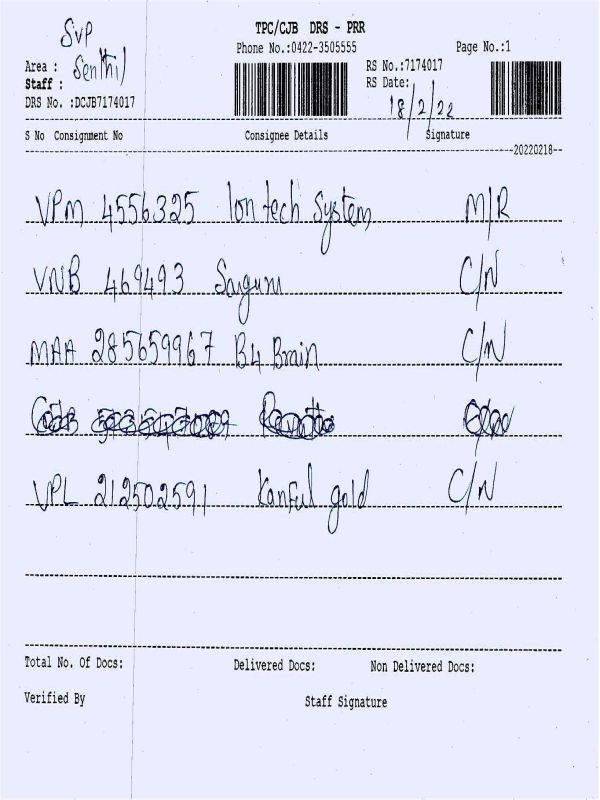 SVP
TPC/CJB DRS - PRR
Phone No.:0422-3505555 Page No.:1
Area : Senthil RS No.:7174017
Staff : RS Date: 18/2/22
DRS No. :DCJB7174017
S No Consignment No Consignee Details Signature
20220218
VPM 4556325 Ion tech System M/R
VNB 469493 C/N
MAA 285659967 B4 Brain C/N
VPL 212502591 gold C/N
Total No. Of Docs: Delivered Docs: Non Delivered Docs:
Verified By Staff Signature